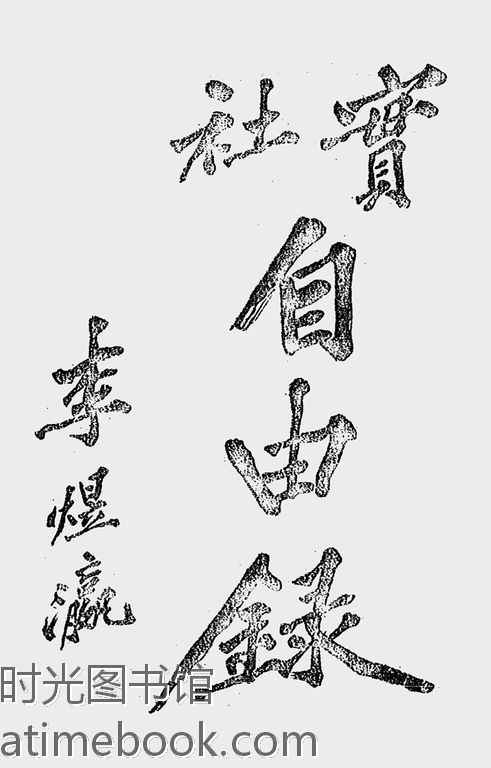 實社
自由錄
李煜瀛
时光图书馆
atimebook.com